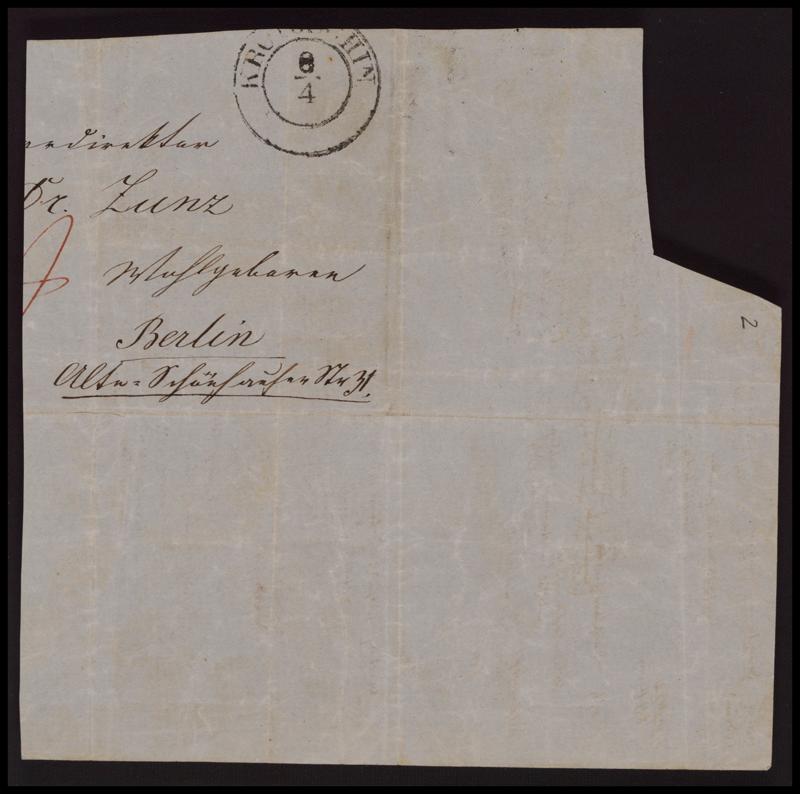 KROTOSCHIN
8
4
direktor
Dr. Zunz
Wohlgeboren
Berlin
Alte-Schönhauser Str 31.
2